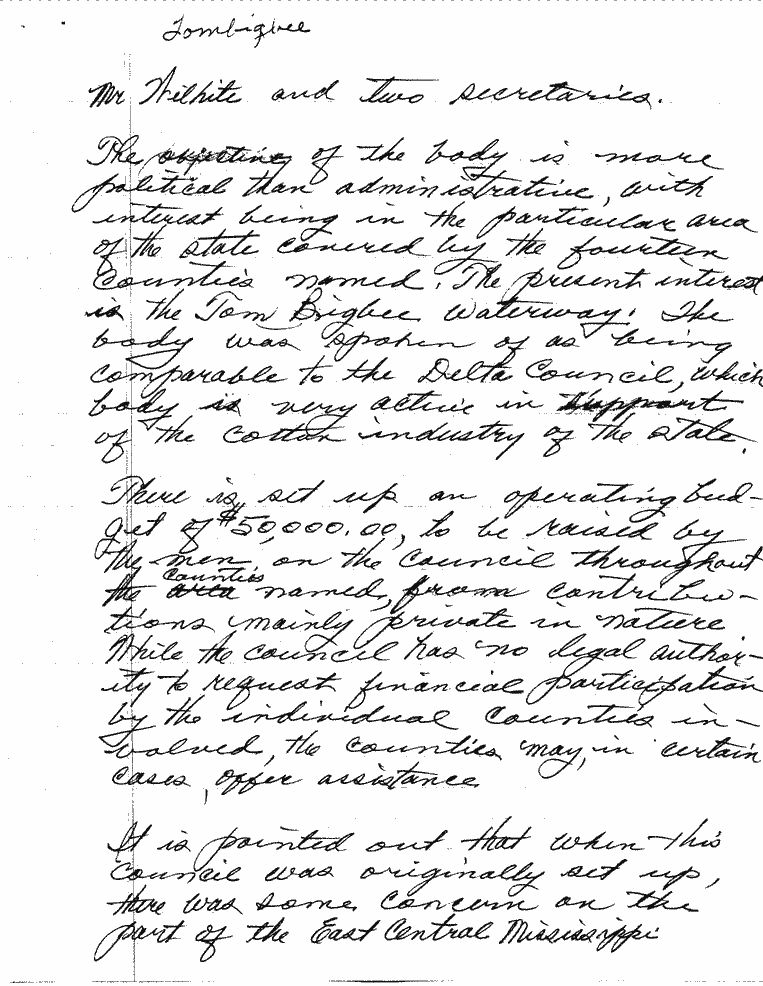 Tombigbee
Mr Wilhite and two secretaries.
The of the body is more
political than administrative, with
interest being in the particular area
of the state covered by the fourteen
Counties named. The present interest
is the Tom Bigbee Waterway. The
body was spoken of as being
comparable to the Delta Council, which
body is very active in support
of the cotton industry of the state.
There is set up an operating bud-
get of $50,000.00, to be raised by
the men on the council throughout
Counties
the area named, from contribu-
tions mainly private in nature
While the council has no legal author-
ity to request financial participation
by the individual Counties in-
volved, the counties may, in certain
cases, offer assistance
It is pointed out that when this
Council was originally set up,
there was some concern on the
part of the East Central Mississippi